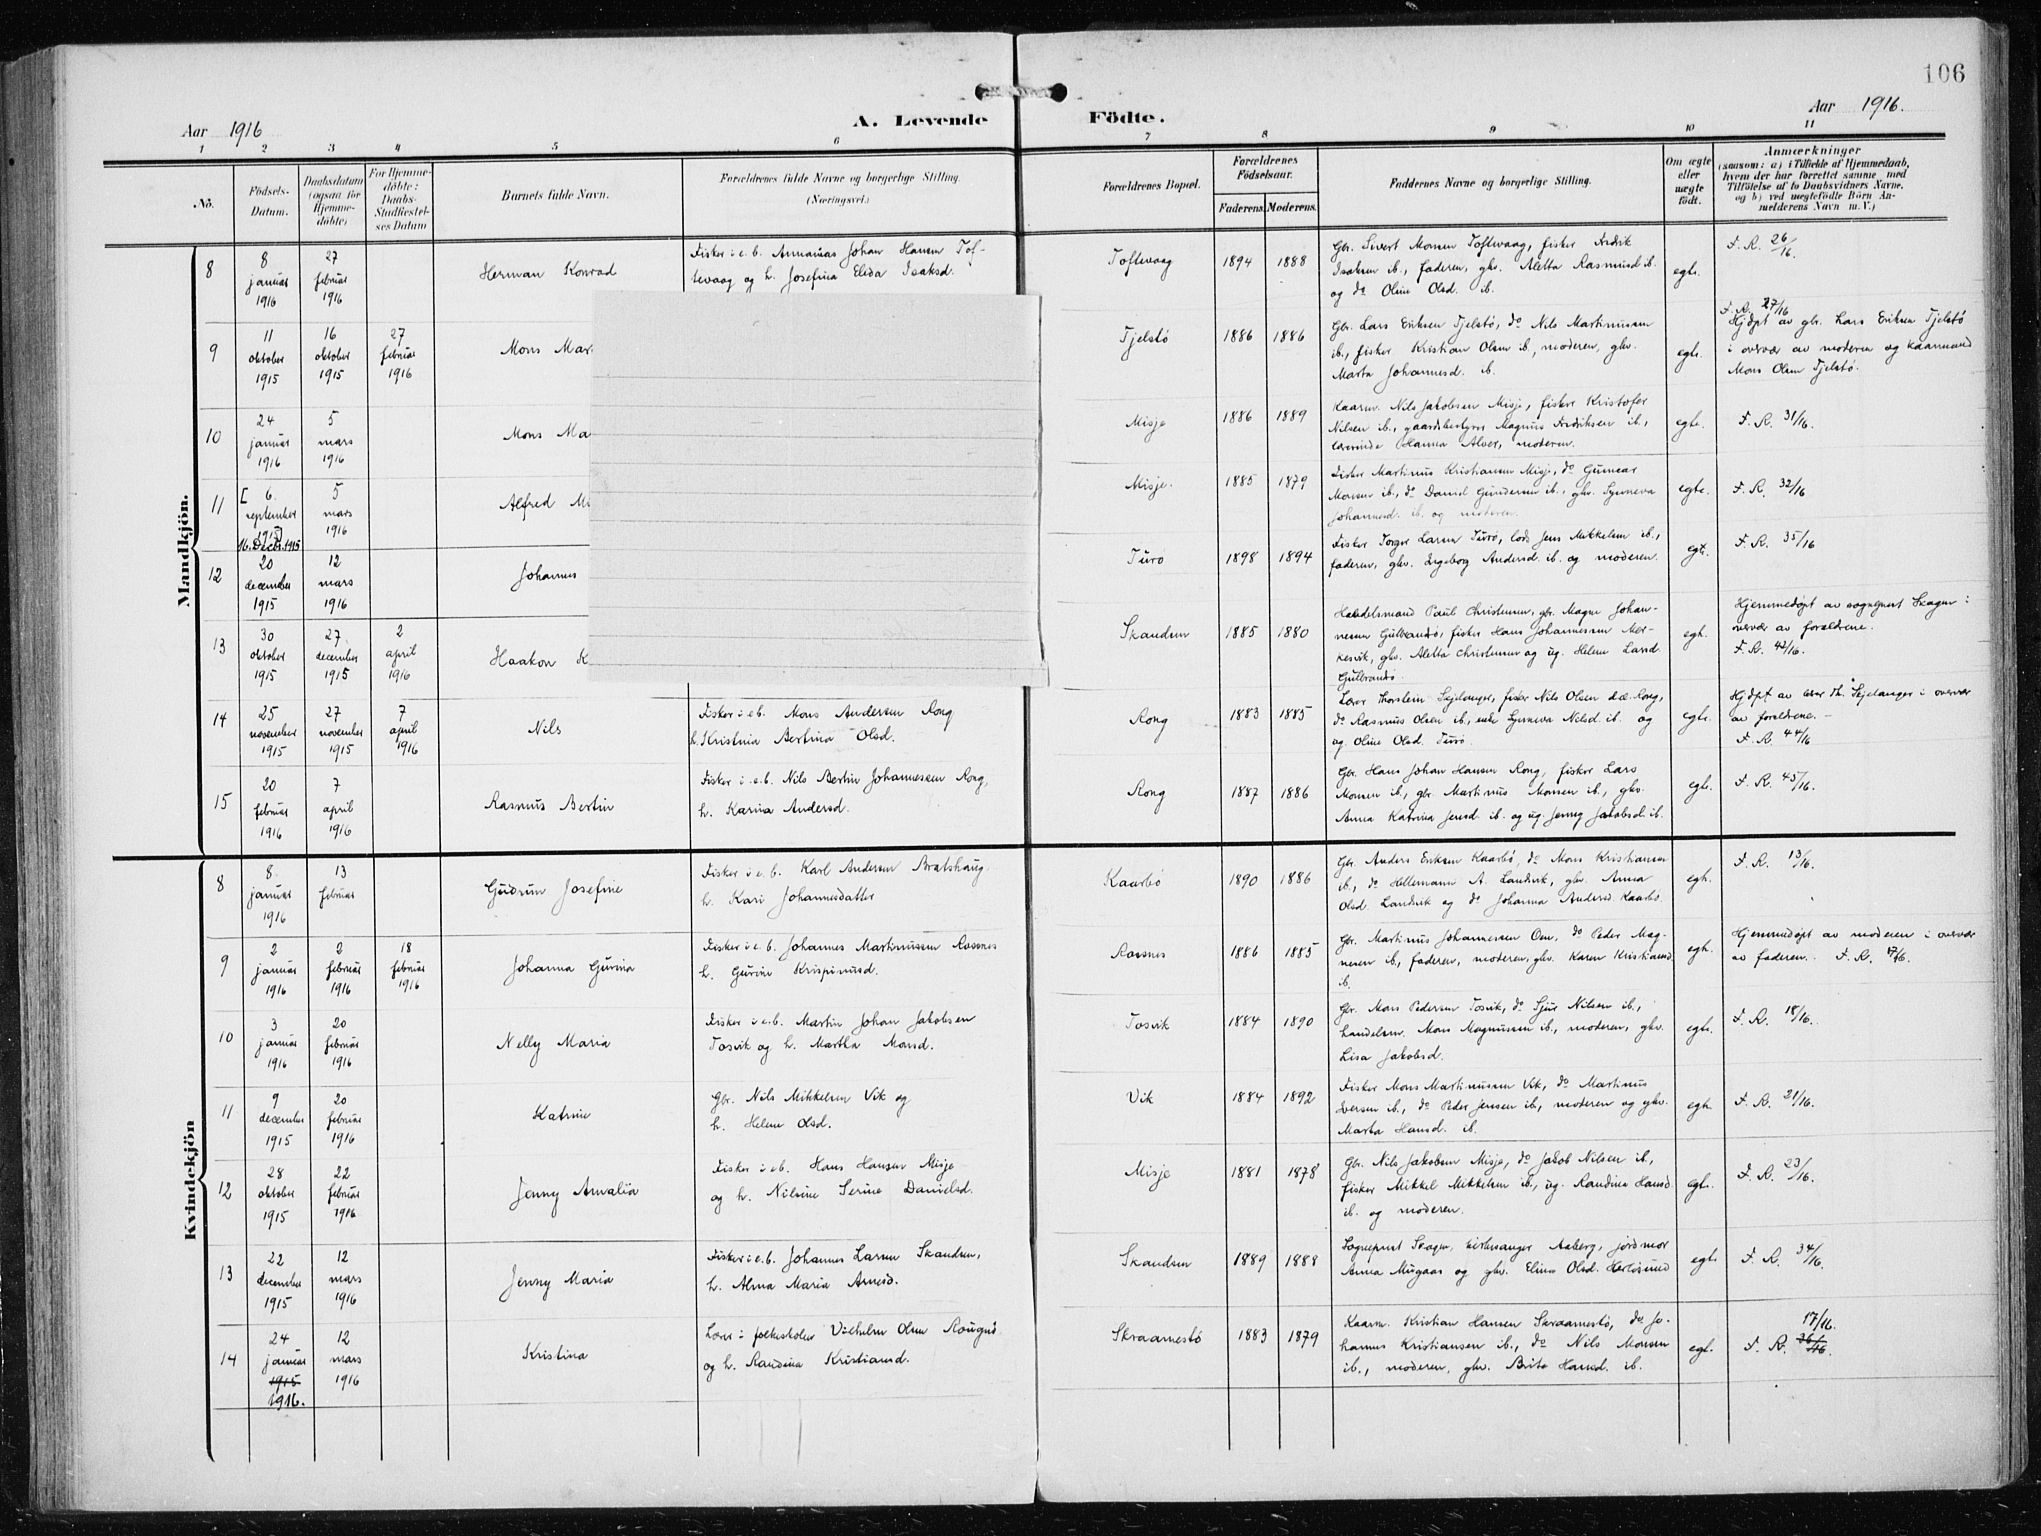 106
Aar 1916
A. Levende
Födte.
Aar 1916.
1 2 3 4 5 6 7 8 9 10 11
No.
Födsels-
Datum.
Daabsdatum
(ogsaa for
Hjemme-
döbte)
For Hjemme-
döbte:
Daabs-
Stadfæstel-
ses Datum
Barnets fulde Navn.
Forældrenes fulde Navne og borgerlige Stilling.
(Næringsvei.)
Forældrenes Bopæl.
Forældrenes
Födselsaar.
Faderens. Moderens.
Faddernes Navne og borgerlige Stilling.
Om ægte
eller
uægte
födt.
Anmærkninger
(saasom: a) i Tilfælde af Hjemmedaab,
hvem der har forrettet samme, med
Tilföielse af to Daabsvidners Navne,
og b) ved uægtefödte Börn An-
melderens Navn m. V.)
Mandkjön.
8
8
januar
1916
27
februar
1916
Herman Konrad
Fisker i e.b. Annanias Johan Hansen Tof-
tevaag og h. Josefina Elida Isaksd.
Toftevaag
1894 1888
Gbr. Sivert Monsen Toftevaag, fisker Fredrik
Isaksen ib., faderen, ghv. Aletta Rasmusd. ib.
og do Oline Olsd. ib.
egte.
F. R. 26/16.
9
11
oktober
1915
16
oktober
1915
27
februar
1916
Mons Mar
Tjelstö
1886 1886
Gbr. Lars Eriksen Tjelstö, do Nils Martinussen
ib., fisker Kristian Olsen ib., moderen, ghv.
Marta Johannesd. ib.
egte.
F. R. 27/16
Hjdpt av gbr. Lars Eriksen Tjelstö
i overvær av moderen og kaarmand
Mons Olsen Tjelstö.
10
24
januar
1916
5
mars
1916
Mons Ma
Misje
1886 1889
Kaarm. Nils Jakobsen Misje, fisker Kristofer
Nilsen ib., gaardsbestyrer Magnus Fredriksen ib.,
lærerinde Hanna Alver, moderen.
egte.
F. R. 31/16.
11
[6.
september
1915]
16. Decbr. 1915
5
mars
1916
Alfred Mi
Misje.
1885 1879
Fisker Martinus Kristiansen Misje, do Gunnar
Monsen ib., do Daniel Gundersen ib., ghv. Synneva
Johannesd. ib. og moderen.
egte.
F. R. 32/16
12
20
december
1915
12
mars
1916
Johannes
Turö
1898 1894
Fisker Torger Larsen Turö, lods Jens Mikkelsen ib.,
faderen, ghv. Ingeborg Andersd. ib. og moderen.
egte.
F. R. 35/16
13
30
oktober
1915
27.
december
1915
2
april
1916
Haakon K
Skandsen
1885 1880
Handelsmand Paul Christensen, gbr. Magne Johan-
nessen Gulbrandsö, fisker Hans Johannessen Mer-
kesvik, ghv. Aletta Christensen og ug. Helene Larsd.
Gulbrandsö.
egte.
Hjemmedøpt av sogneprest Skagen i
overvær av forældrene.
F. R. 42/16.
14
25
november
1915
27
november
1915
7
april
1916
Nils
Fisker i e.b. Mons Andersen Rong
h. Kristina Bertina Olsd.
Rong
1883 1885
Lærer Thorstein Skjelanger, fisker Nils Olsen d.æ. Rong,
do Rasmus Olsen ib., enke Synneva Nilsd. ib. og
ug. Oline Olsd. Turö.
egte.
Hjdpt av lærer Th. Skjelanger i overvær
av forældrene. -
F. R. 44/16
15
20
februar
1916
7
april
1916
Rasmus Bertin
Fisker i e.b. Nils Bertin Johannessen Rong,
h. Karina Andersd.
Rong
1887 1886
Gbr. Hans Johan Hansen Rong, fisker Lars
Monsen ib., gbr. Martinus Monsen ib., ghv.
Anna Katrina Jensd. ib. og ug. Jenny Jakobsd. ib.
egte.
F. R. 45/16.
Kvindekjön
8
8.
januar
1916
13
februar
Gudrun Josefine
Fisker i e.b. Karl Andersen Bratshaug
h. Kari Johannesdatter
Kaarbö
1890 1886
Gbr. Anders Eriksen Kaarbö, do Mons Kristiansen
ib., do Hellemann A. Landvik, ghv. Anna
Olsd. Landvik og do Johanna Andersd. Kaarbö.
egte.
F. R. 13/16.
9
2
januar
1916
2
februar
1916
18
februar
1916
Johanna Gurina
Fisker i e.b. Johannes Martinussen Rossnes
h. Gurine Krispinusd.
Rossnes
1886 1885
Gbr. Martinus Johannessen Oen, do Peder Mag-
nesen ib., faderen, moderen, ghv. Karen Kristiansd.
ib.
egte.
Hjemmedøpt av moderen i overvær
av faderen. F. R. 17/16.
10
3
januar
1916
20
februar
1916
Nelly Maria
Fisker i e.b. Martin Johan Jakobsen
Tosvik og h. Martha Monsd.
Tosvik
1884 1890
Gbr. Mons Pedersen Tosvik, do Sjur Nilsen ib.,
handelsm. Mons Magnussen ib., moderen, ghv.
Lisa Jakobsd.
egte.
F. R. 18/16.
11
9
december
1915
20
februar
1916
Katrine
Gbr. Nils Mikkelsen Vik og
h. Helene Olsd.
Vik
1884 1892
Fisker Mons Martinussen Vik, do Martinus
Iversen ib., do Peder Jensen ib., moderen og ghv.
Marta Hansd. ib.
egte.
F. R. 21/16.
12
28
oktober
1915
22
februar
1916
Jenny Amalia
Fisker i e.b. Hans Hansen Misje
og h. Nilsine Serine Danielsd.
Misje
1881 1878
Gbr. Nils Jakobsen Misje, do Jakob Nilsen ib.,
fisker Mikkel Mikkelsen ib., ug. Randina Hansd.
ib. og moderen.
egte.
F. R. 23/16.
13
22
december
1915
12
mars
1916
Jenny Maria
Fisker i e.b. Johannes Larsen Skandsen,
h. Alma Maria Arnesd.
Skandsen
1889 1888
Sogneprest Skagen, kirkesanger Aaberg, jordmor
Anna Mugaas og ghv. Elina Olsd. Herlösund
egte
F. R. 34/16.
14
24
januar
1915
1916.
12
mars
1916
Kristina
Lærer i folkeskolen Vilhelm Olsen
og h. Randina Kristiansd.
Skraamestö
1883 1879
Kaarm. Kristian Hansen Skraamestö, do Jo-
hannes Kristiansen ib., do Nils Monsen
ib., moderen, ghv. Brite Hansd. ib.
egte.
17/16.
F. R. 36/16.